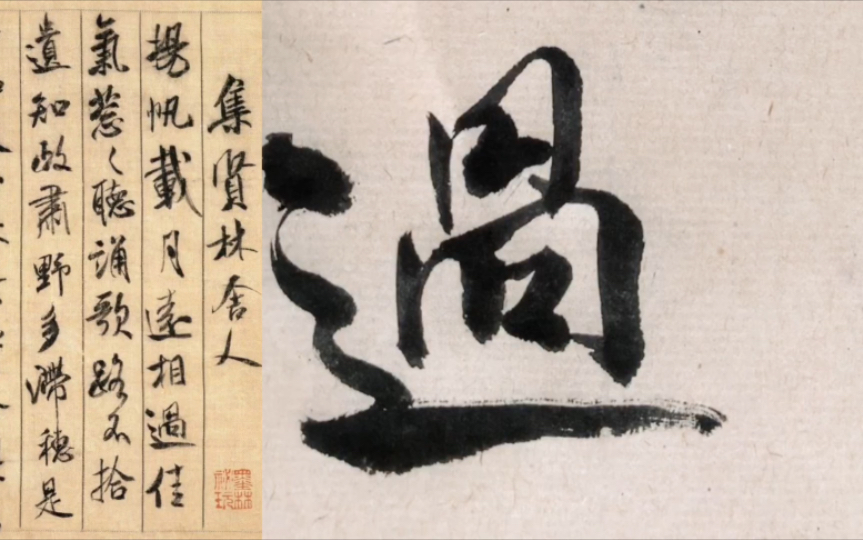 集賢林舍人
揚帆載月遠相過佳
氣蔥〻聽誦歌路不拾
遺知政肅野多滯穗是
墨林
祕玩
過